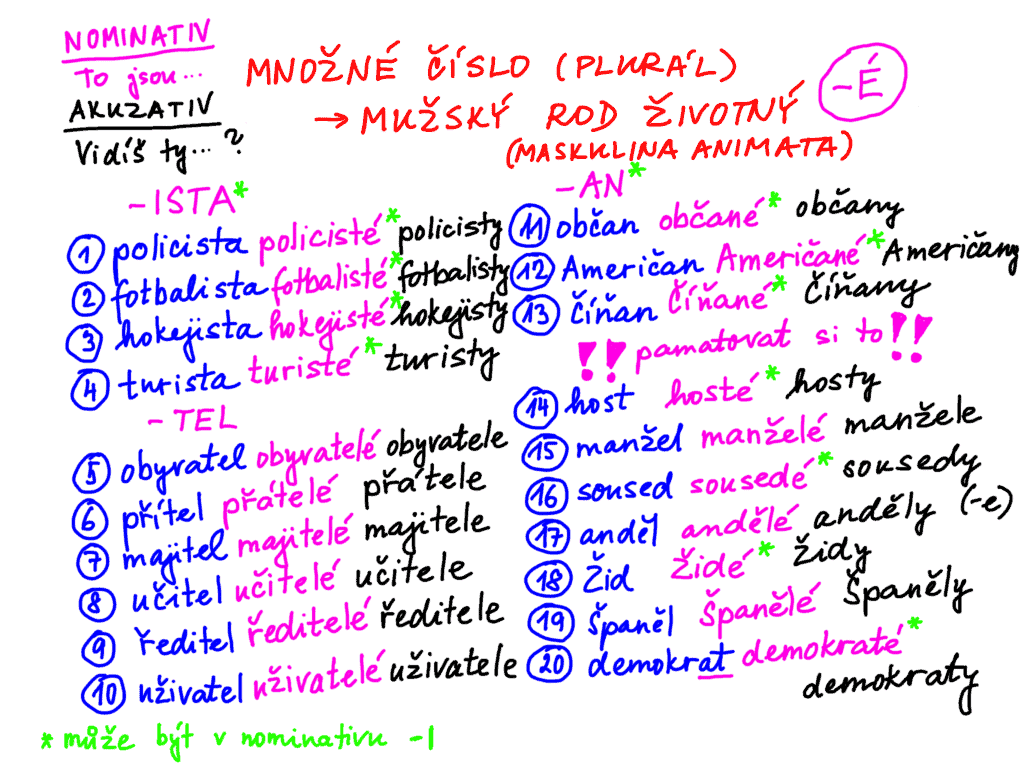 NOMINATIV
To jsou...
AKUZATIV
Vidíš ty... ?
MNOŽNÉ ČÍSLO (PLURÁL)
→ MUŽSKÝ ROD ŽIVOTNÝ
(MASKULINA ANIMATA)
-É
-ISTA*
1 policista policisté* policisty
2 fotbalista fotbalisté* fotbalisty
3 hokejista hokejisté* hokejisty
4 turista turisté* turisty
-TEL
5 obyvatel obyvatelé obyvatele
6 přítel přátelé přátele
7 majitel majitelé majitele
8 učitel učitelé učitele
9 ředitel ředitelé ředitele
10 uživatel uživatelé uživatele
-AN*
11 občan občané* občany
12 Američan Američané* Američany
13 Číňan Číňané* Číňany
!! pamatovat si to !!
14 host hosté* hosty
15 manžel manželé manžele
16 soused sousedé* sousedy
17 anděl andělé anděly (-e)
18 Žid Židé* Židy
19 Španěl Španělé Španěly
20 demokrat demokraté*
demokraty
* může být v nominativu -I